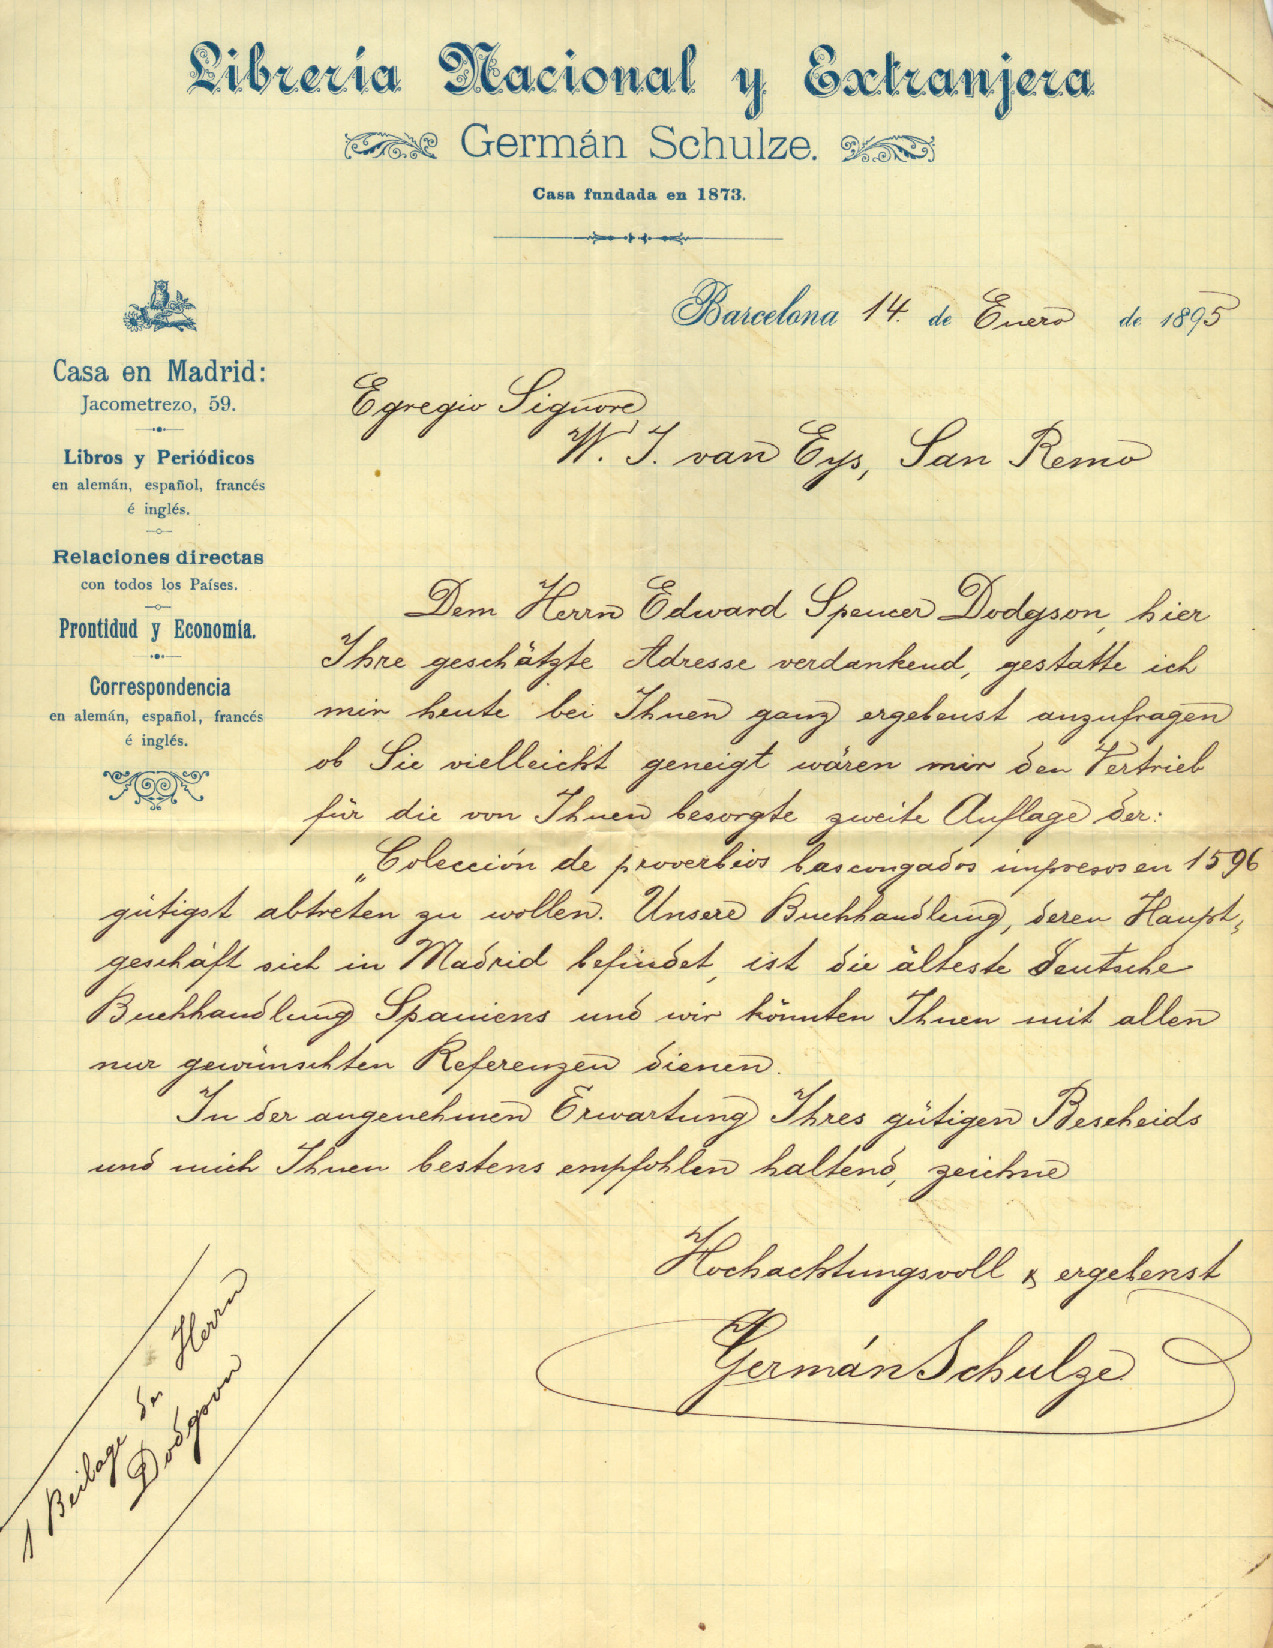 Librería Nacional y Extranjera
Germán Schulze.
Casa fundada en 1873.
Barcelona 14. de Enero de 1895
Casa en Madrid:
Jacometrezo, 59.
Libros y Periódicos
en alemán, español, francés
é inglés.
Relaciones directas
con todos los Países.
Prontidud y Economía.
Correspondencia
en alemán, español, francés
é inglés.
Egregio Signore
W. J. van Eys, San Remo
Dem Herrn Edward Spencer Dodgson, hier
Ihre geschätzte Adresse verdankend, gestatte ich
mir heute bei Ihnen ganz ergebenst anzufragen
ob Sie vielleicht geneigt wären mir den Vertrieb
für die von Ihnen besorgte zweite Auflage der:
„Colección de proverbios bascongados impresos en 1596
gütigst abtreten zu wollen. Unsere Buchhandlung, deren Haupt-
geschäft sich in Madrid befindet, ist die älteste deutsche
Buchhandlung Spaniens und wir könnten Ihnen mit allen
nur gewünschten Referenzen dienen.
In der angenehmen Erwartung Ihres gütigen Bescheids
und mich Ihnen bestens empfohlen haltend, zeichne
Hochachtungsvoll & ergebenst
Germán Schulze
1 Beilage des Herrn
Dodgson